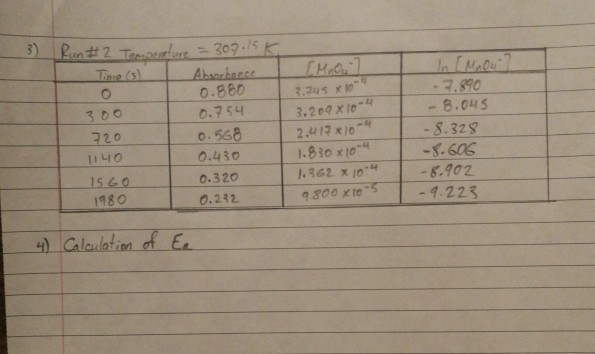 3) Run #2 Temperature = 307.15 K
Time (s) Absorbance [MnO4-] ln [MnO4-]
0 0.880 3.745 x 10-4 -7.890
300 0.754 3.209 x 10-4 -8.045
720 0.568 2.417 x 10-4 -8.328
1140 0.430 1.830 x 10-4 -8.606
1560 0.320 1.362 x 10-4 -8.902
1980 0.232 9.800 x 10-5 -9.223
4) Calculation of Ea